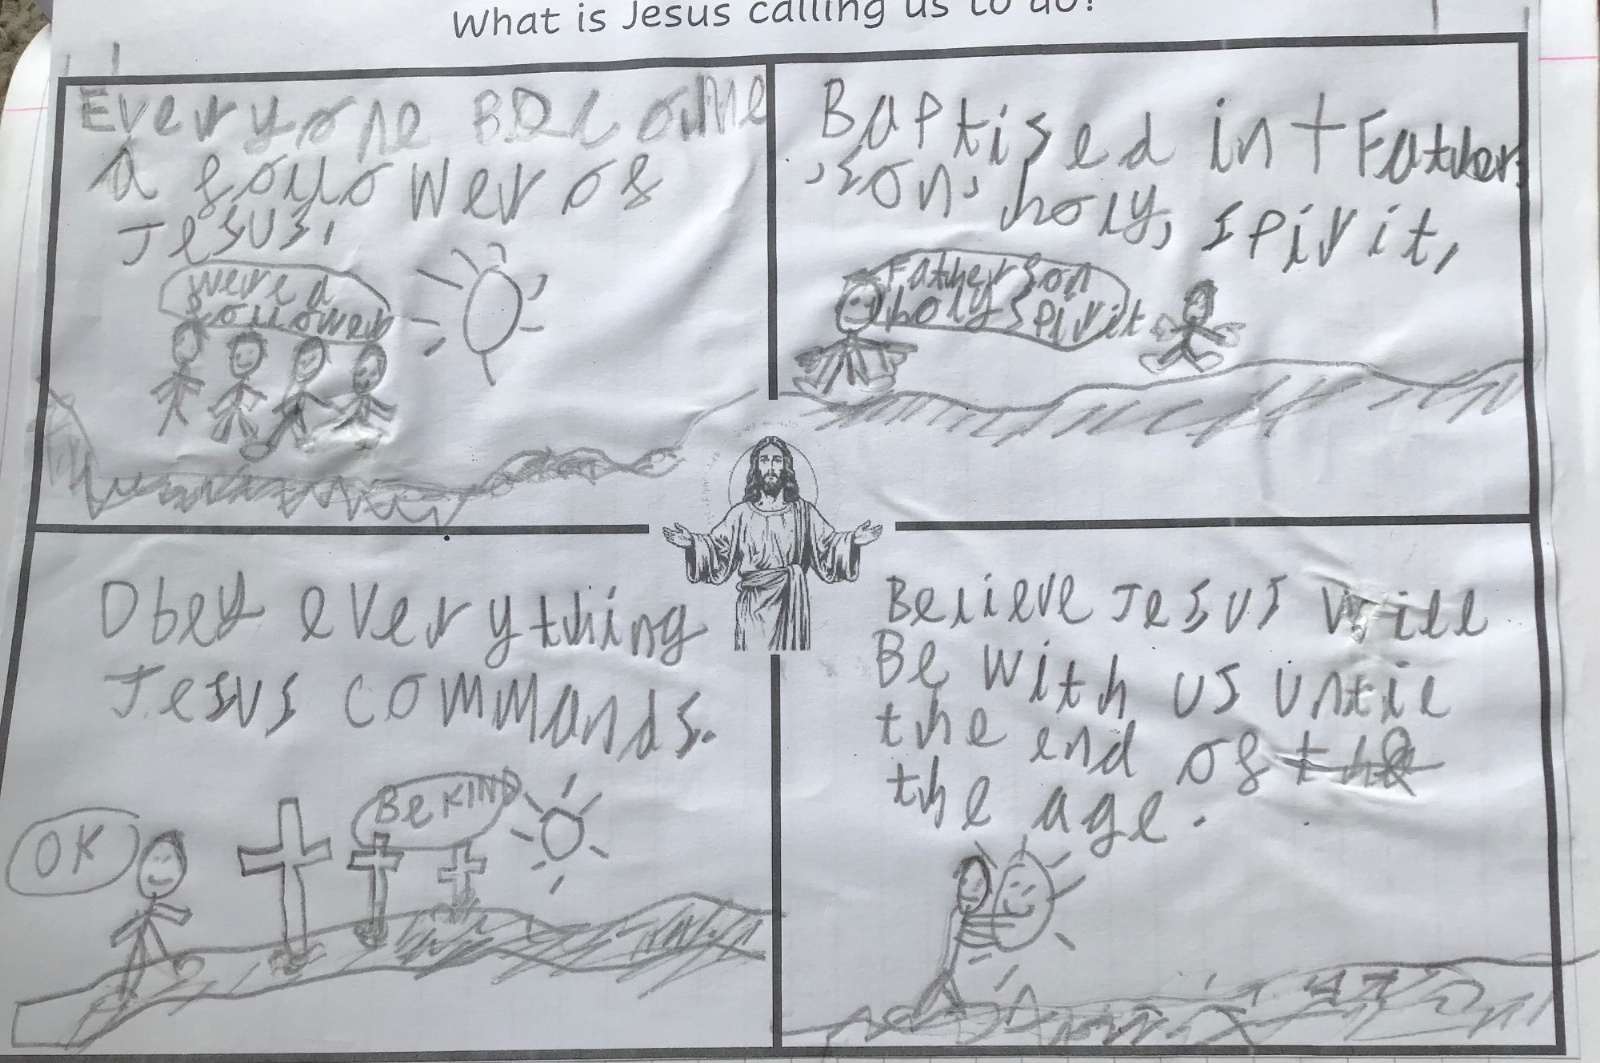 What is Jesus calling us to do?
Everyone Become
a follower of
Jesus,
were a
follower
Baptised in t Father
, son, holy, spirit,
Father Son
holy Spirit
Obey everything
Jesus commands.
OK
Be KIND
Believe Jesus will
Be with us until
the end of the
the age.